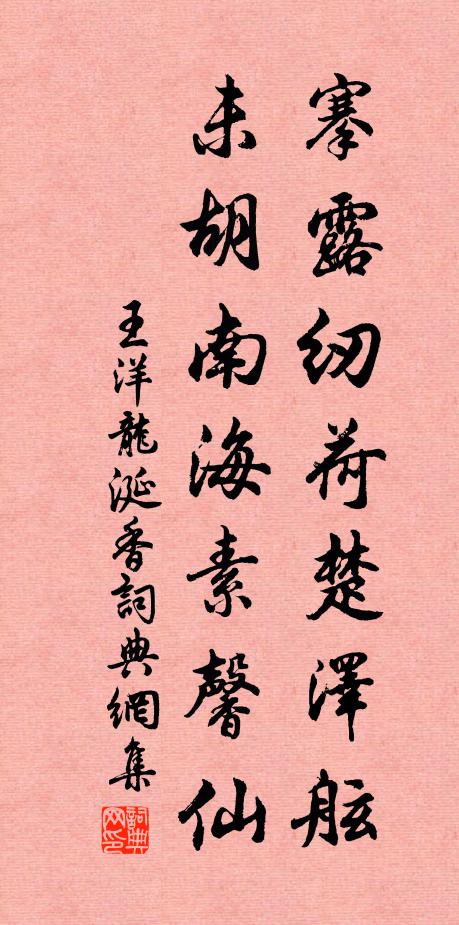 搴露纫荷楚澤舷
未胡南海素馨仙
王洋龍涎香詞典網集
詞典網印